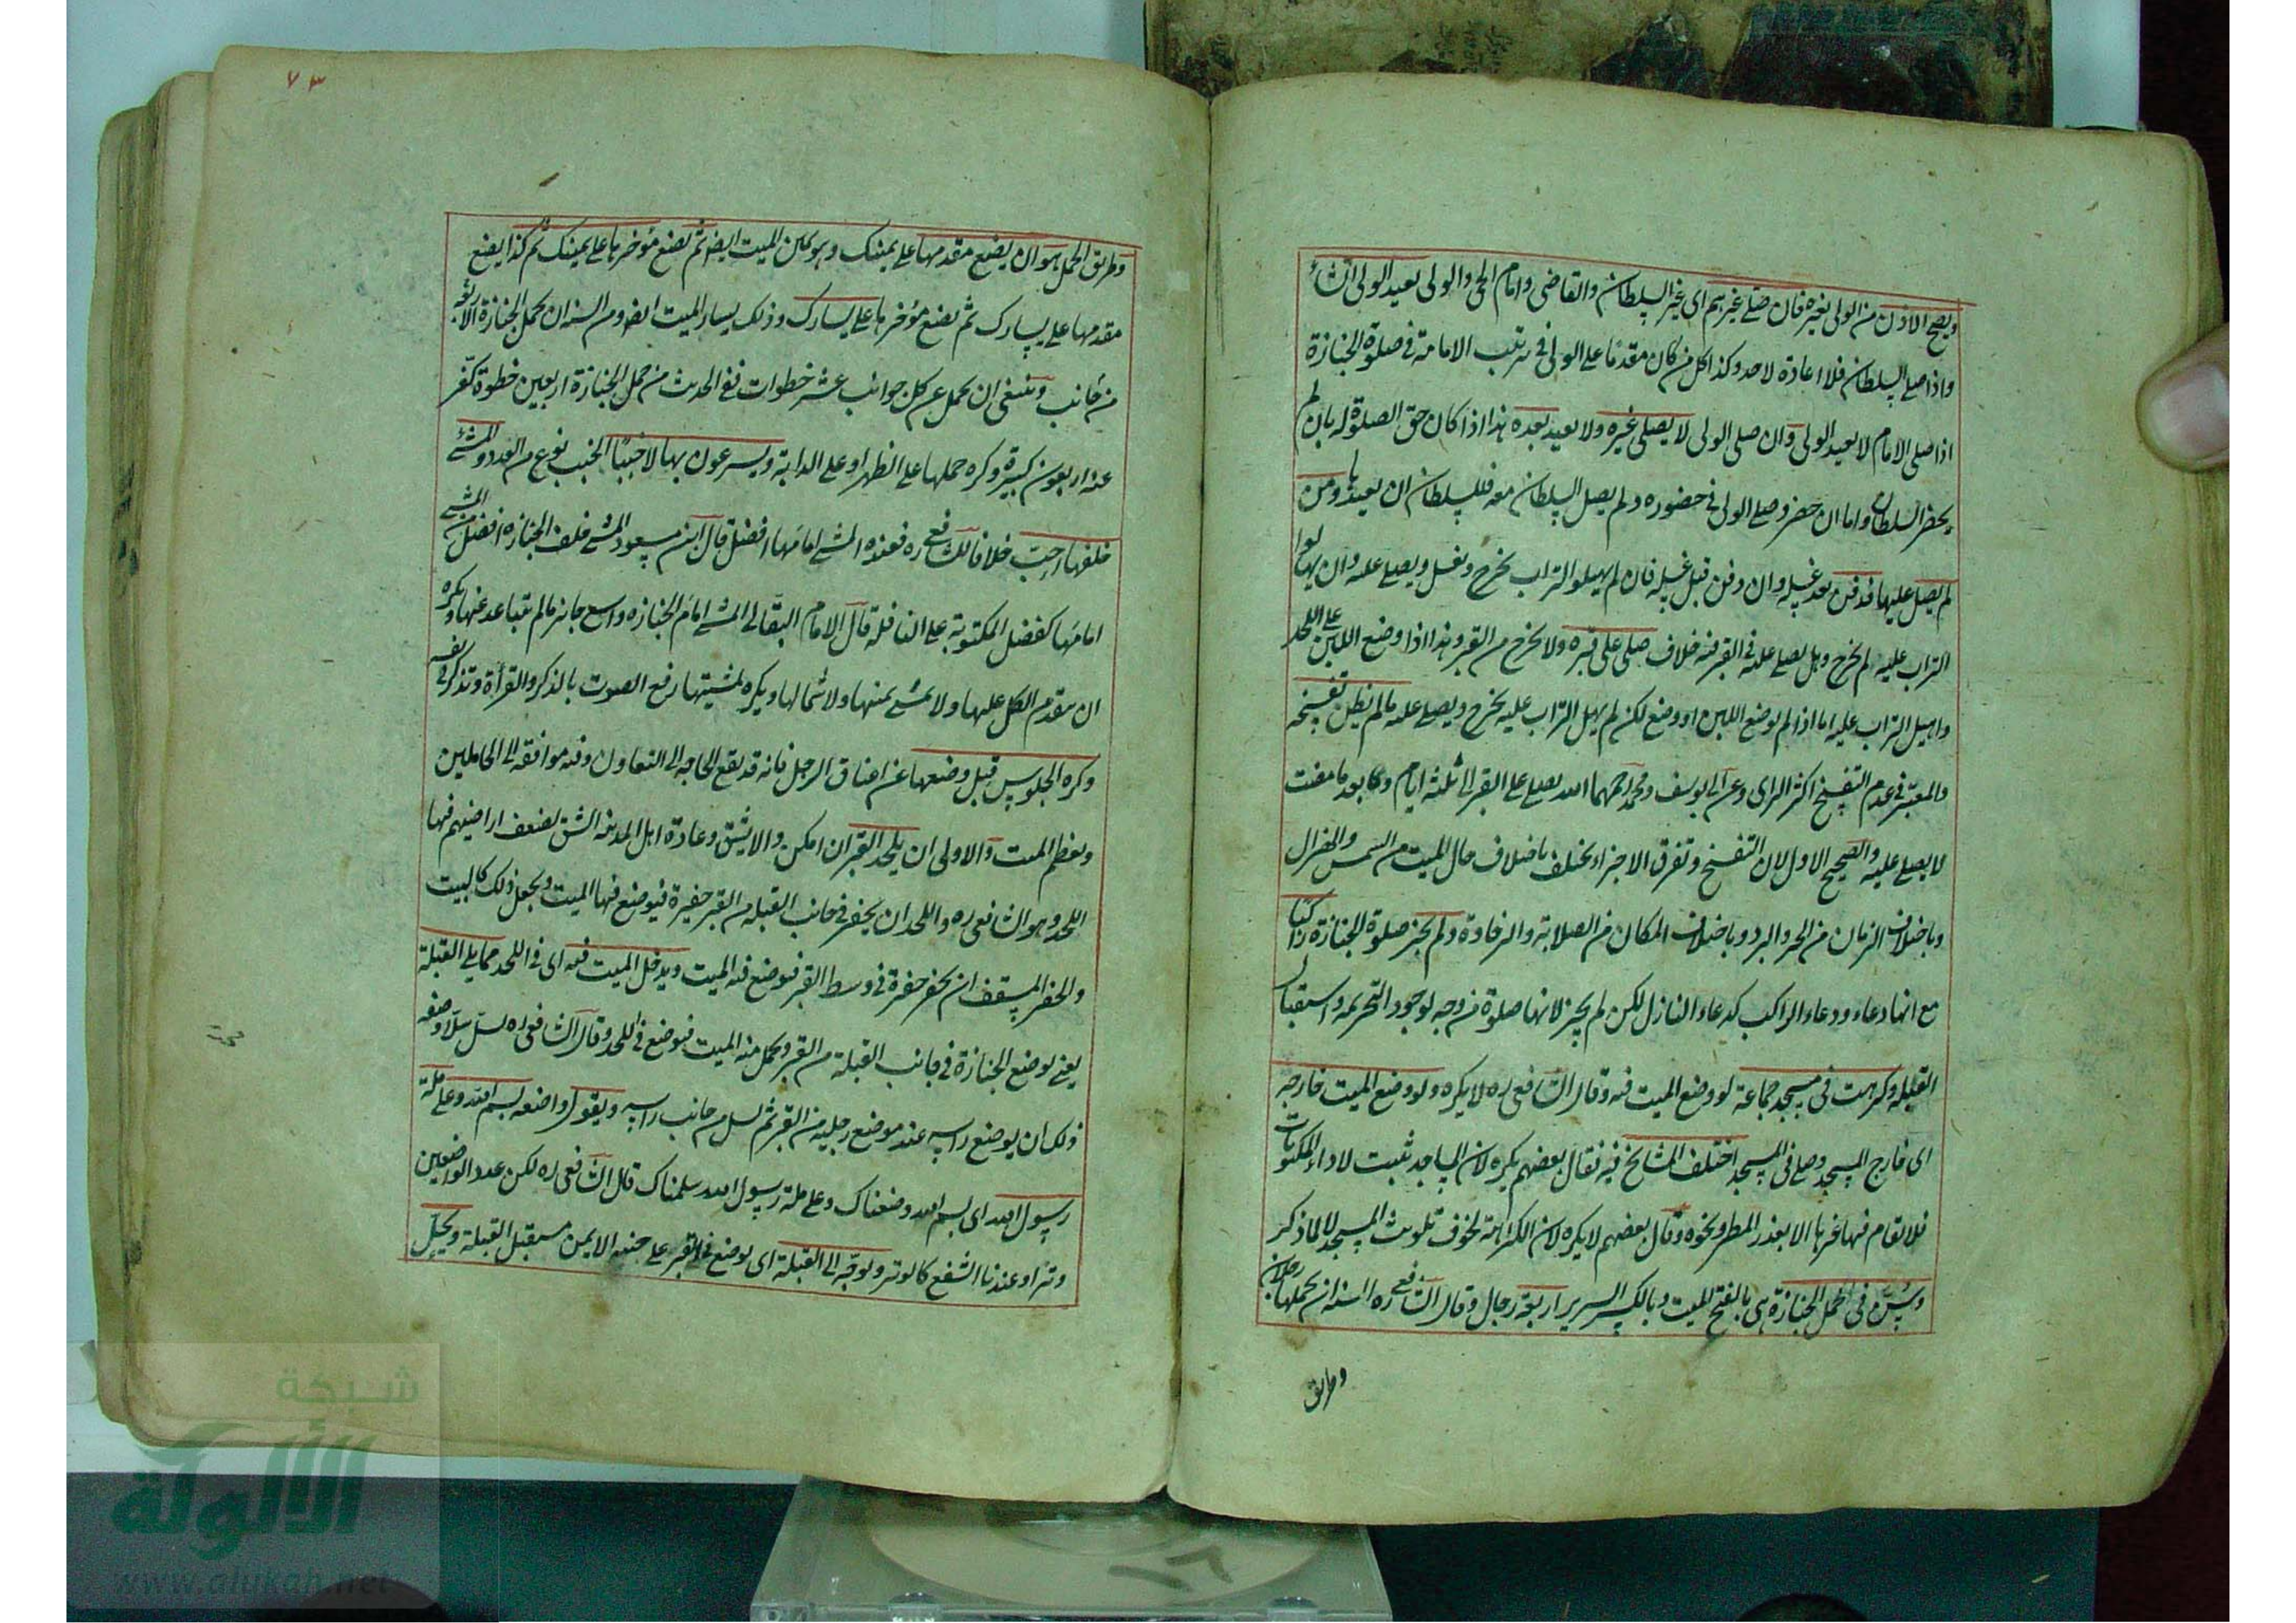 ويصح الاذن من الولى لغيره فان صلى غيرهم اى غير السلطان والقاضى وامام الحى والولى يعيد الولى ان شاء
واذا صلى السلطان فلا اعادة لاحد وكذا كل من كان مقدما على الولى فى ترتيب الامامة فى صلوة الجنازة
اذا صلى الامام لا يعيد الولى وان صلى الولى لا يصلى غيره ولا يعيد بعده هذا اذا كان حق الصلوة له بان لم
يحضر السلطان واما ان حضر وصلى الولى فى حضوره ولم يصل السلطان معه فللسلطان ان يعيدها ومن
لم يصل عليها فدفن بعد غسله وان دفن قبل غسله فان لم يهيلوا التراب يخرج ويغسل ويصلى عليه وان يهالوا
التراب عليه لم يخرج وهل يصلى عليه فى القبر فيه خلاف صلى على قبره ولا يخرج من القبر وهذا اذا وضع اللبن على اللحد
واهيل التراب عليه اما اذا لم يوضع اللبن او وضع لكن لم يهل التراب عليه يخرج ويصلى عليه ما لم يظن تفسخه
والمعتبر فى عدم التفسخ اكثر الراى وعن ابى يوسف ومحمد رحمهما الله يصلى على القبر الى ثلثة ايام واما بعد ما مضت
لا يصلى عليه والصحيح الاول لان التفسخ وتفرق الاجزاء يختلف باختلاف حال الميت من السمن والهزال
وباختلاف الزمان من الحر والبرد وباختلاف المكان من الصلابة والرخاوة ولم يجز صلوة الجنازة راكبا
مع انها دعاء ودعاء الراكب كدعاء النازل لكن لم يجز لانها صلوة من وجه لوجود التحريمة واستقبال
القبلة وكرهت فى مسجد جماعة لو وضع الميت فيه وقال الشافعى ره لا يكره ولو وضع الميت خارجه
اى خارج المسجد وصلى فى المسجد اختلف المشايخ فيه فقال بعضهم يكره لان المساجد بنيت لاداء المكتوبات
فلا تقام فيها غيرها الا بعذر المطر ونحوه وقال بعضهم لا يكره لان الكراهة لخوف تلويث المسجد لا لما ذكر
ويسن فى حمل الجنازة هى بالفتح الميت وبالكسر السرير اربعة رجال وقال الشافعى ره السنة ان يحملها رجلان
وطريق
٧٣
وطريق الحمل هو ان يضع مقدمها على يمينك وهو يمين الميت ايضا ثم يضع مؤخرها على يمينك ثم كذا يضع
مقدمها على يسارك ثم يضع مؤخرها على يسارك وذلك يسار الميت ايضا ومن السنة ان يحمل الجنازة الاربعة
من جانب وينبغى ان يحمل عن كل جوانب عشر خطوات ففى الحديث من حمل الجنازة اربعين خطوة كفر
عنه اربعون كبيرة وكره حملها على الظهر او على الدابة ويسرعون بها لا خببا الخبب نوع من العدو والمشى
خلفها احب خلافا للشافعى ره فعنده المشى امامها افضل قال ابن مسعود المشى خلف الجنازه افضل من المشى
امامها كفضل المكتوبة على النافلة قال الامام البقالى المشى امام الجنازه واسع جائز ما لم يتباعد عنها ويكره
ان يتقدم الكل عليها ولا يمشى يمينها ولا شمالها ويكره لمشيتها رفع الصوت بالذكر والقرأة ويذكر فى نفسه
وكره الجلوس قبل وضعها عن اعناق الرجل فانه قد يقع الحاجه الى التعاون وفيه موافقه الى الحاملين
وتعظيم الميت والاولى ان يلحد القبر ان امكن والا يشق وعادة اهل المدينه الشق لضعف اراضيهم فيها
اللحد وهو الشافعى ره واللحد ان يحفر فى جانب القبلة من القبر حفيرة فيوضع فيها الميت ويجعل ذلك كالبيت
والحفر المسقف ان يحفر حفرة فى وسط القبر فيوضع فيه الميت ويدخل الميت فيه اى فى اللحد مما يلى القبلة
يعنى يوضع الجنازة فى جانب القبلة من القبر ويحمل منه الميت فيوضع فى اللحد وقال الشافعى ره يسل سلا وصفه
ذلك ان يوضع راسه عند موضع رجليه من القبر ثم يسل من جانب راسه ويقول واضعه بسم الله وعلى ملة
رسول الله اى بسم الله وضعناك وعلى ملة رسول الله سلمناك قال الشافعى ره لكن عدد الواضعين
وتر او عندنا الشفع كالوتر ويوجه الى القبلة اى يوضع فى القبر على جنبه الايمن مستقبل القبلة ويحل
شبكة
الألوكة
www.alukah.net